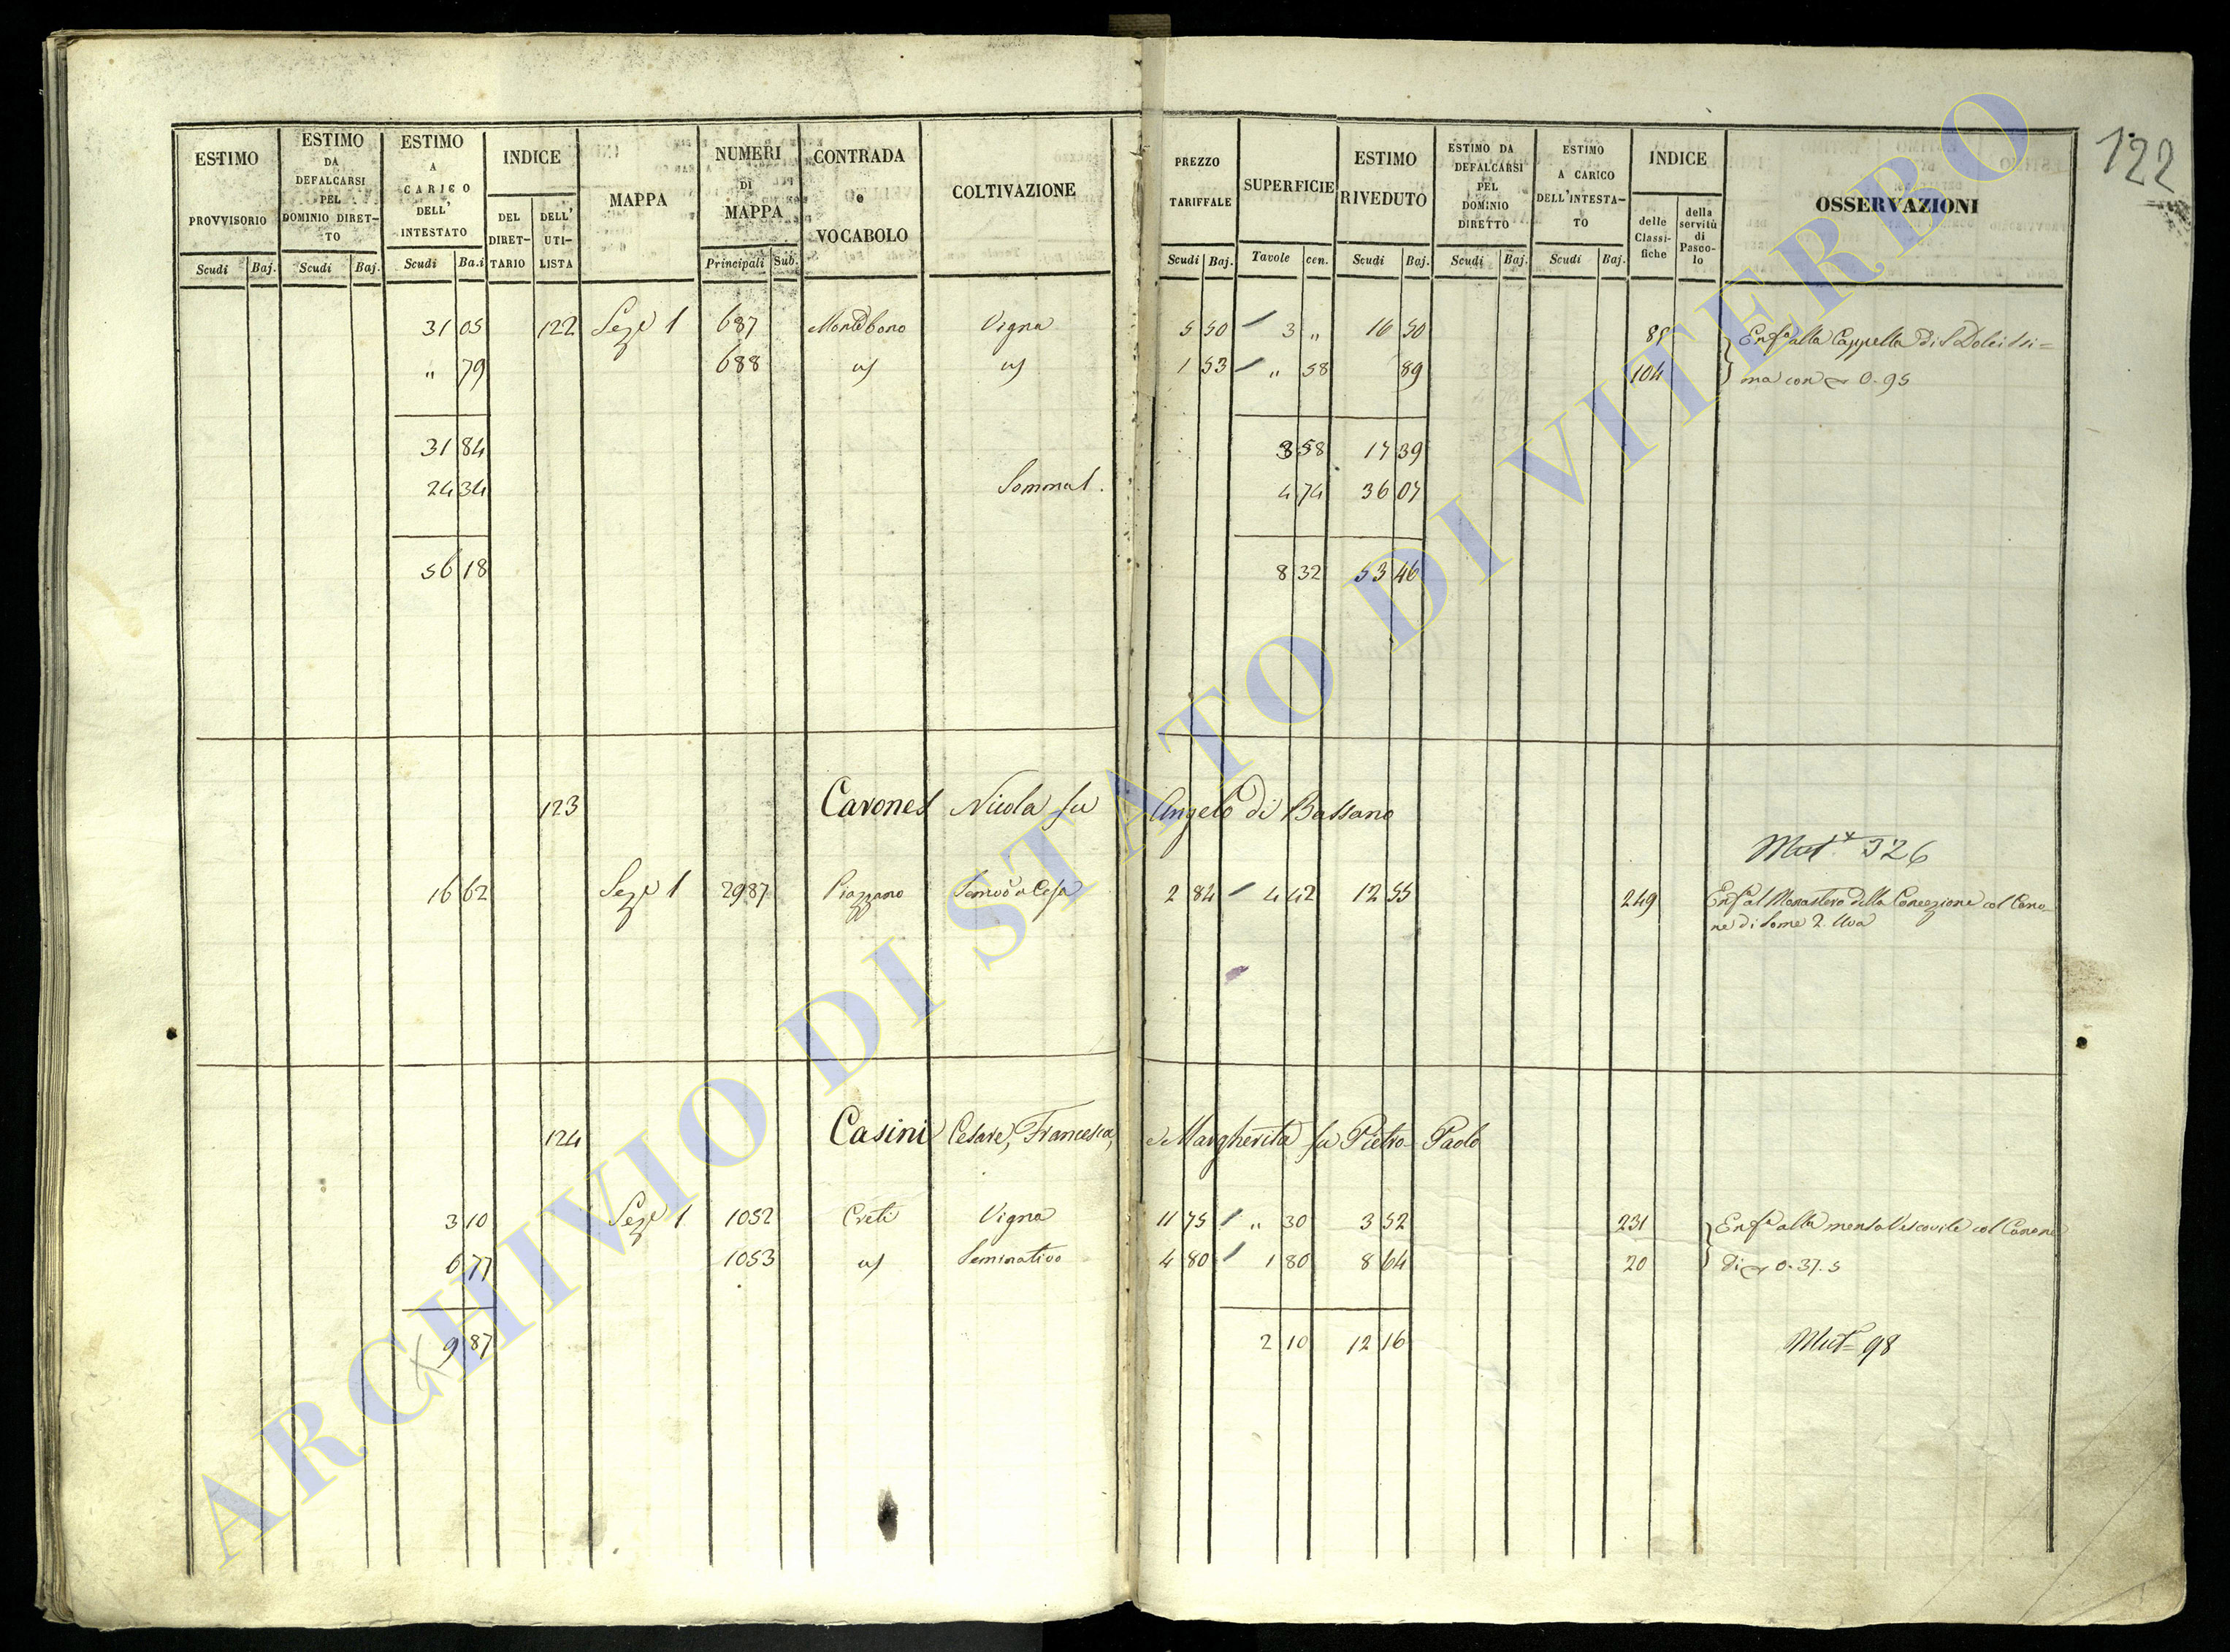 122
ESTIMO PROVVISORIO Scudi Baj.
ESTIMO DA DEFALCARSI PEL DOMINIO DIRET-TO Scudi Baj.
ESTIMO A CARICO DELL' INTESTATO Scudi Ba.i
INDICE DEL DIRET-TARIO DELL' UTI-LISTA
MAPPA
NUMERI DI MAPPA Principali Sub.
CONTRADA e VOCABOLO
COLTIVAZIONE
PREZZO TARIFFALE Scudi Baj.
SUPERFICIE Tavole cen.
ESTIMO RIVEDUTO Scudi Baj.
ESTIMO DA DEFALCARSI PEL DOMINIO DIRETTO Scudi Baj.
ESTIMO A CARICO DELL'INTESTA-TO Scudi Baj.
INDICE delle Classi-fiche della servitù di Pasco-lo
OSSERVAZIONI
31 05 122 Seze 1 687 Montebono Vigna 5 50 3 „ 16 50 Enfa alla Cappella di S Dolcissi=
„ 79 688 us us 1 53 „ 58 89 104 ma con 0.95
31 84 3 58 17 39
24 34 4 74 36 07
56 18 8 32 53 46
123 Carones Nicola fu Angelo di Bassano
Mut 326
16 62 Sezе 1 2987 Piazzano 2 84 4 42 12 55 249 Enfa al Monastero della Concezione col Cano-
ne di Some 2. Uva
124 Casini Cesare, Francesca, e Margherita fu Pietro Paolo
3 10 Seze 1 1052 Creti Vigna 11 75 „ 30 3 52 231 Enfa alla mensa Vescovile col Canone
6 77 1053 us Seminativo 4 80 1 80 8 64 20 di 0.37.5
9 87 2 10 12 16 Mut 98
ARCHIVIO DI STATO DI VITERBO